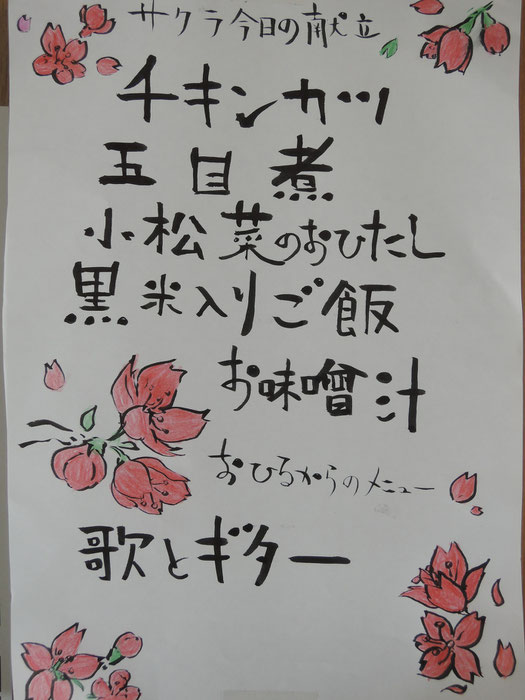 サクラ今日の献立
チキンカツ
五目煮
小松菜のおひたし
黒米入りご飯
お味噌汁
おひるからのメニュー
歌とギター